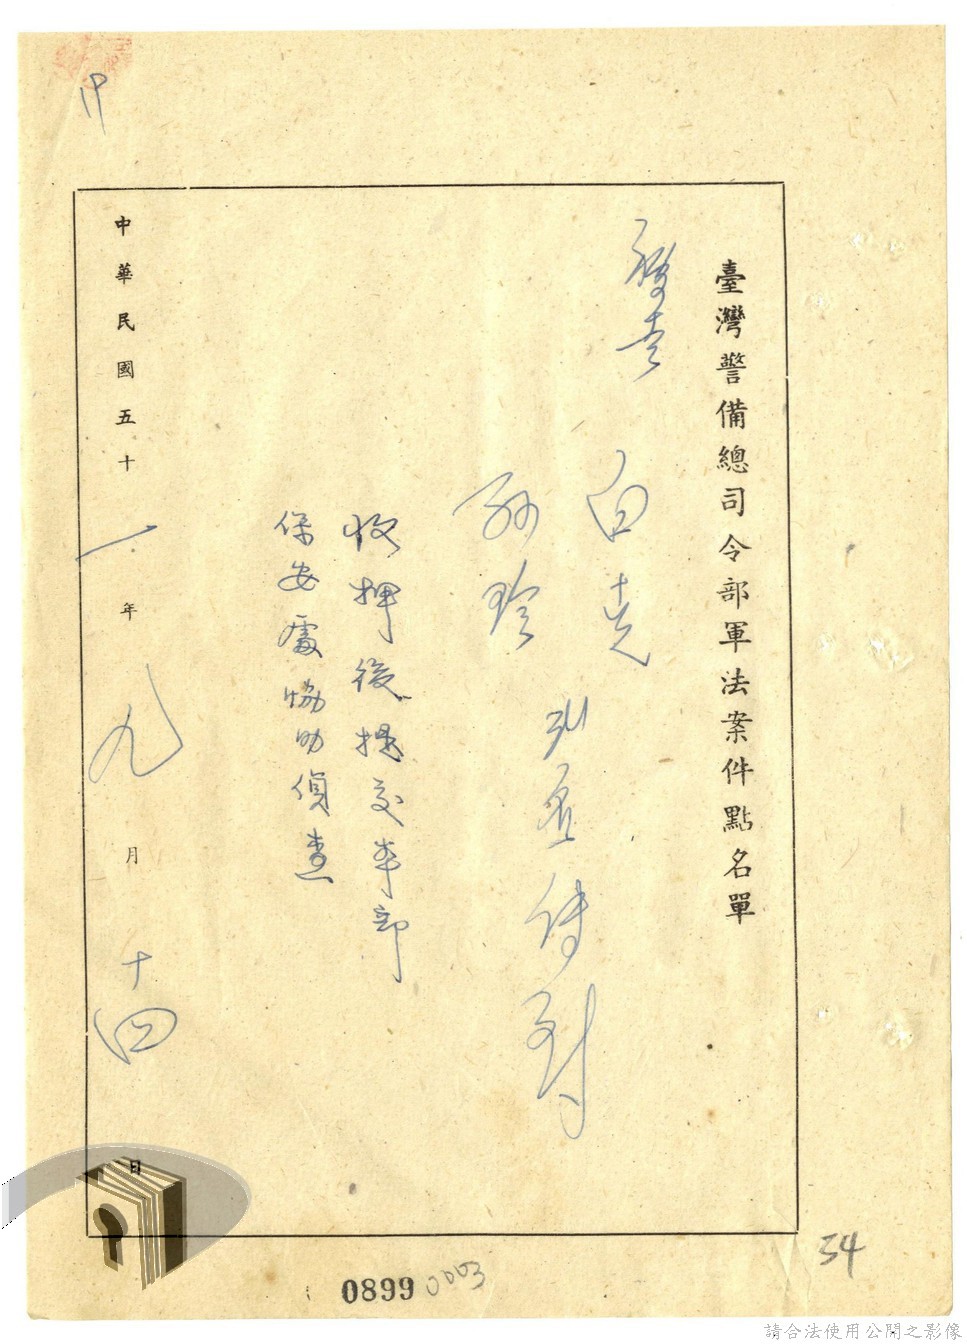 臺灣警備總司令部軍法案件點名單
白克
到
收押後提交本部
保安處協助偵查
中華民國五十一年九月十四日
54
0899
0003
請合法使用公開之影像